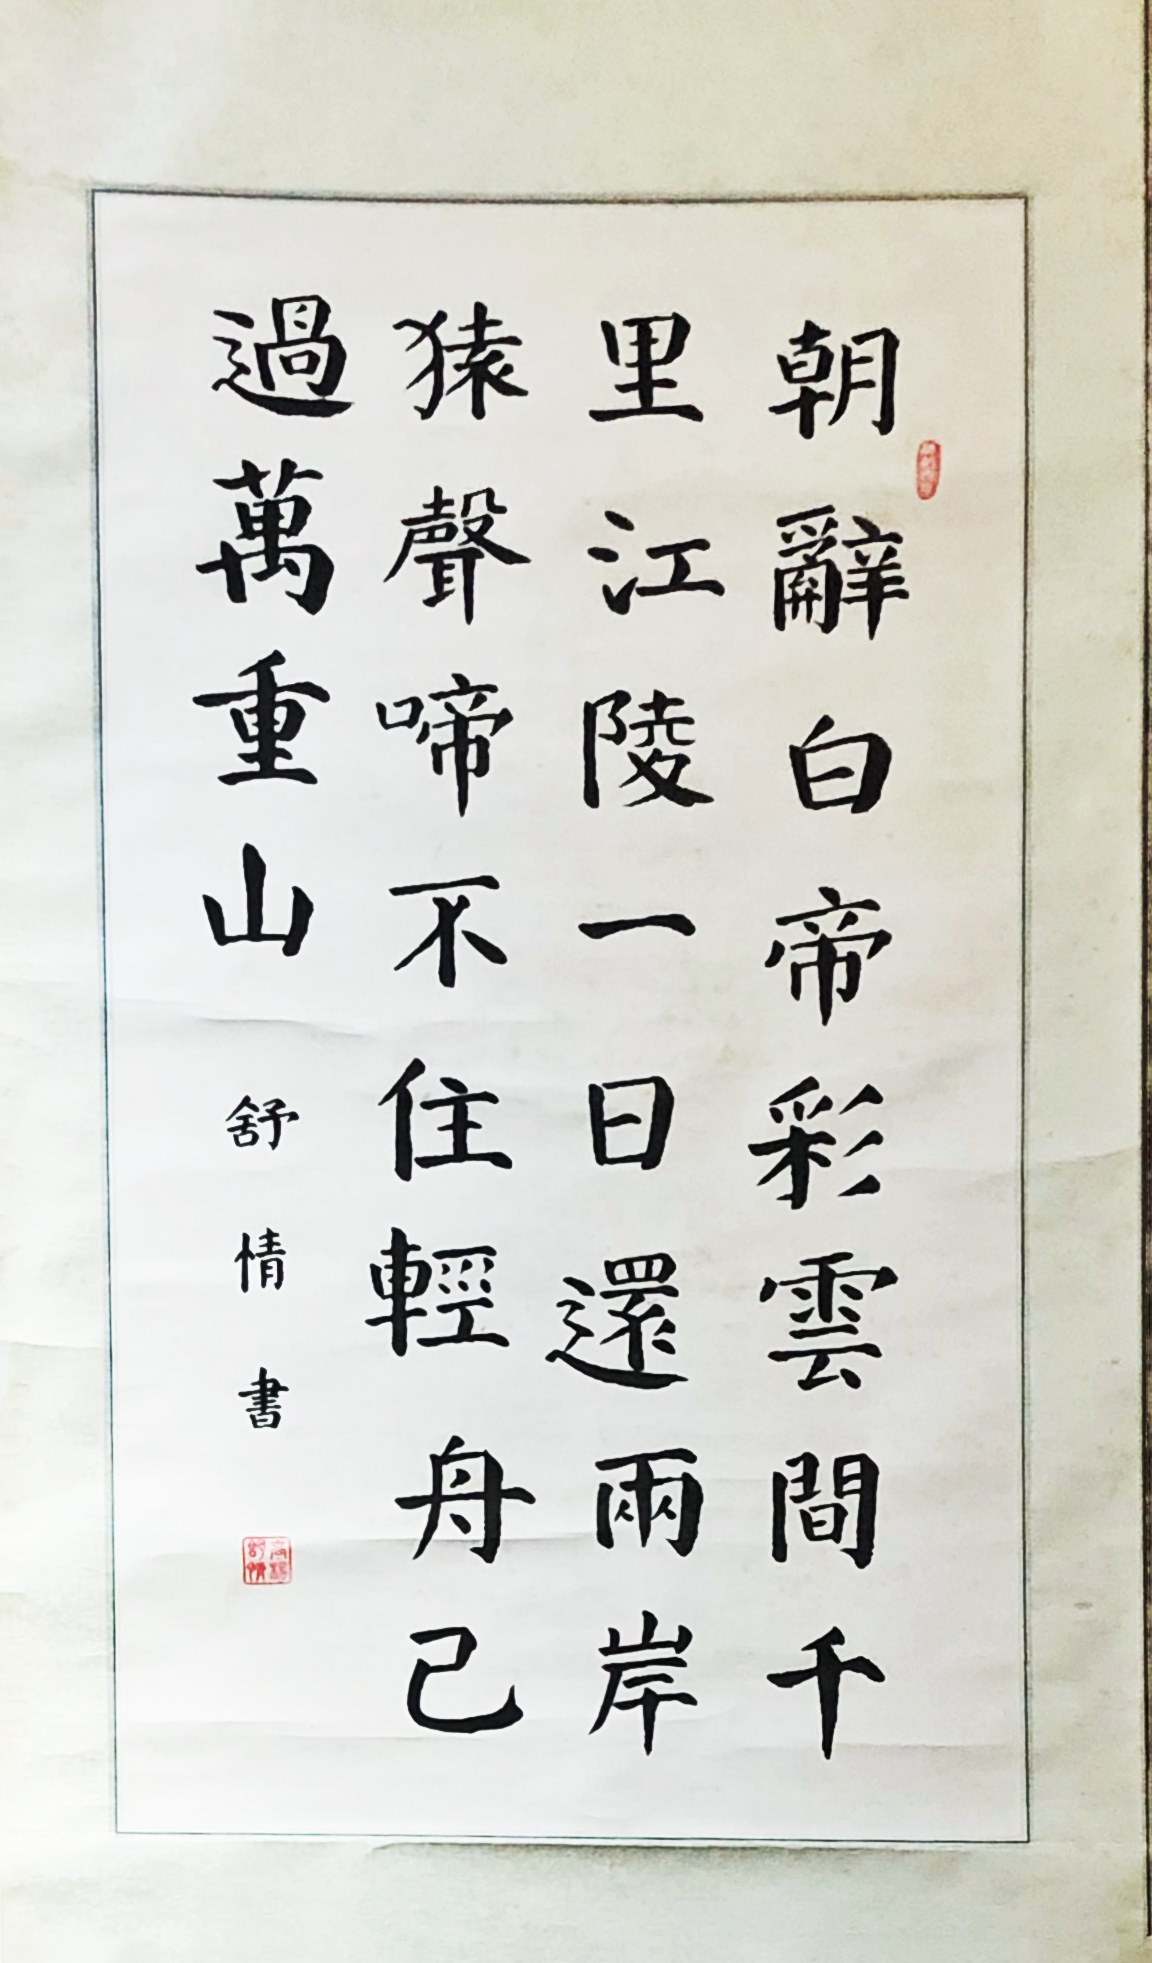 朝辭白帝彩雲間千
里江陵一日還兩岸
猿聲啼不住輕舟已
過萬重山
舒情書